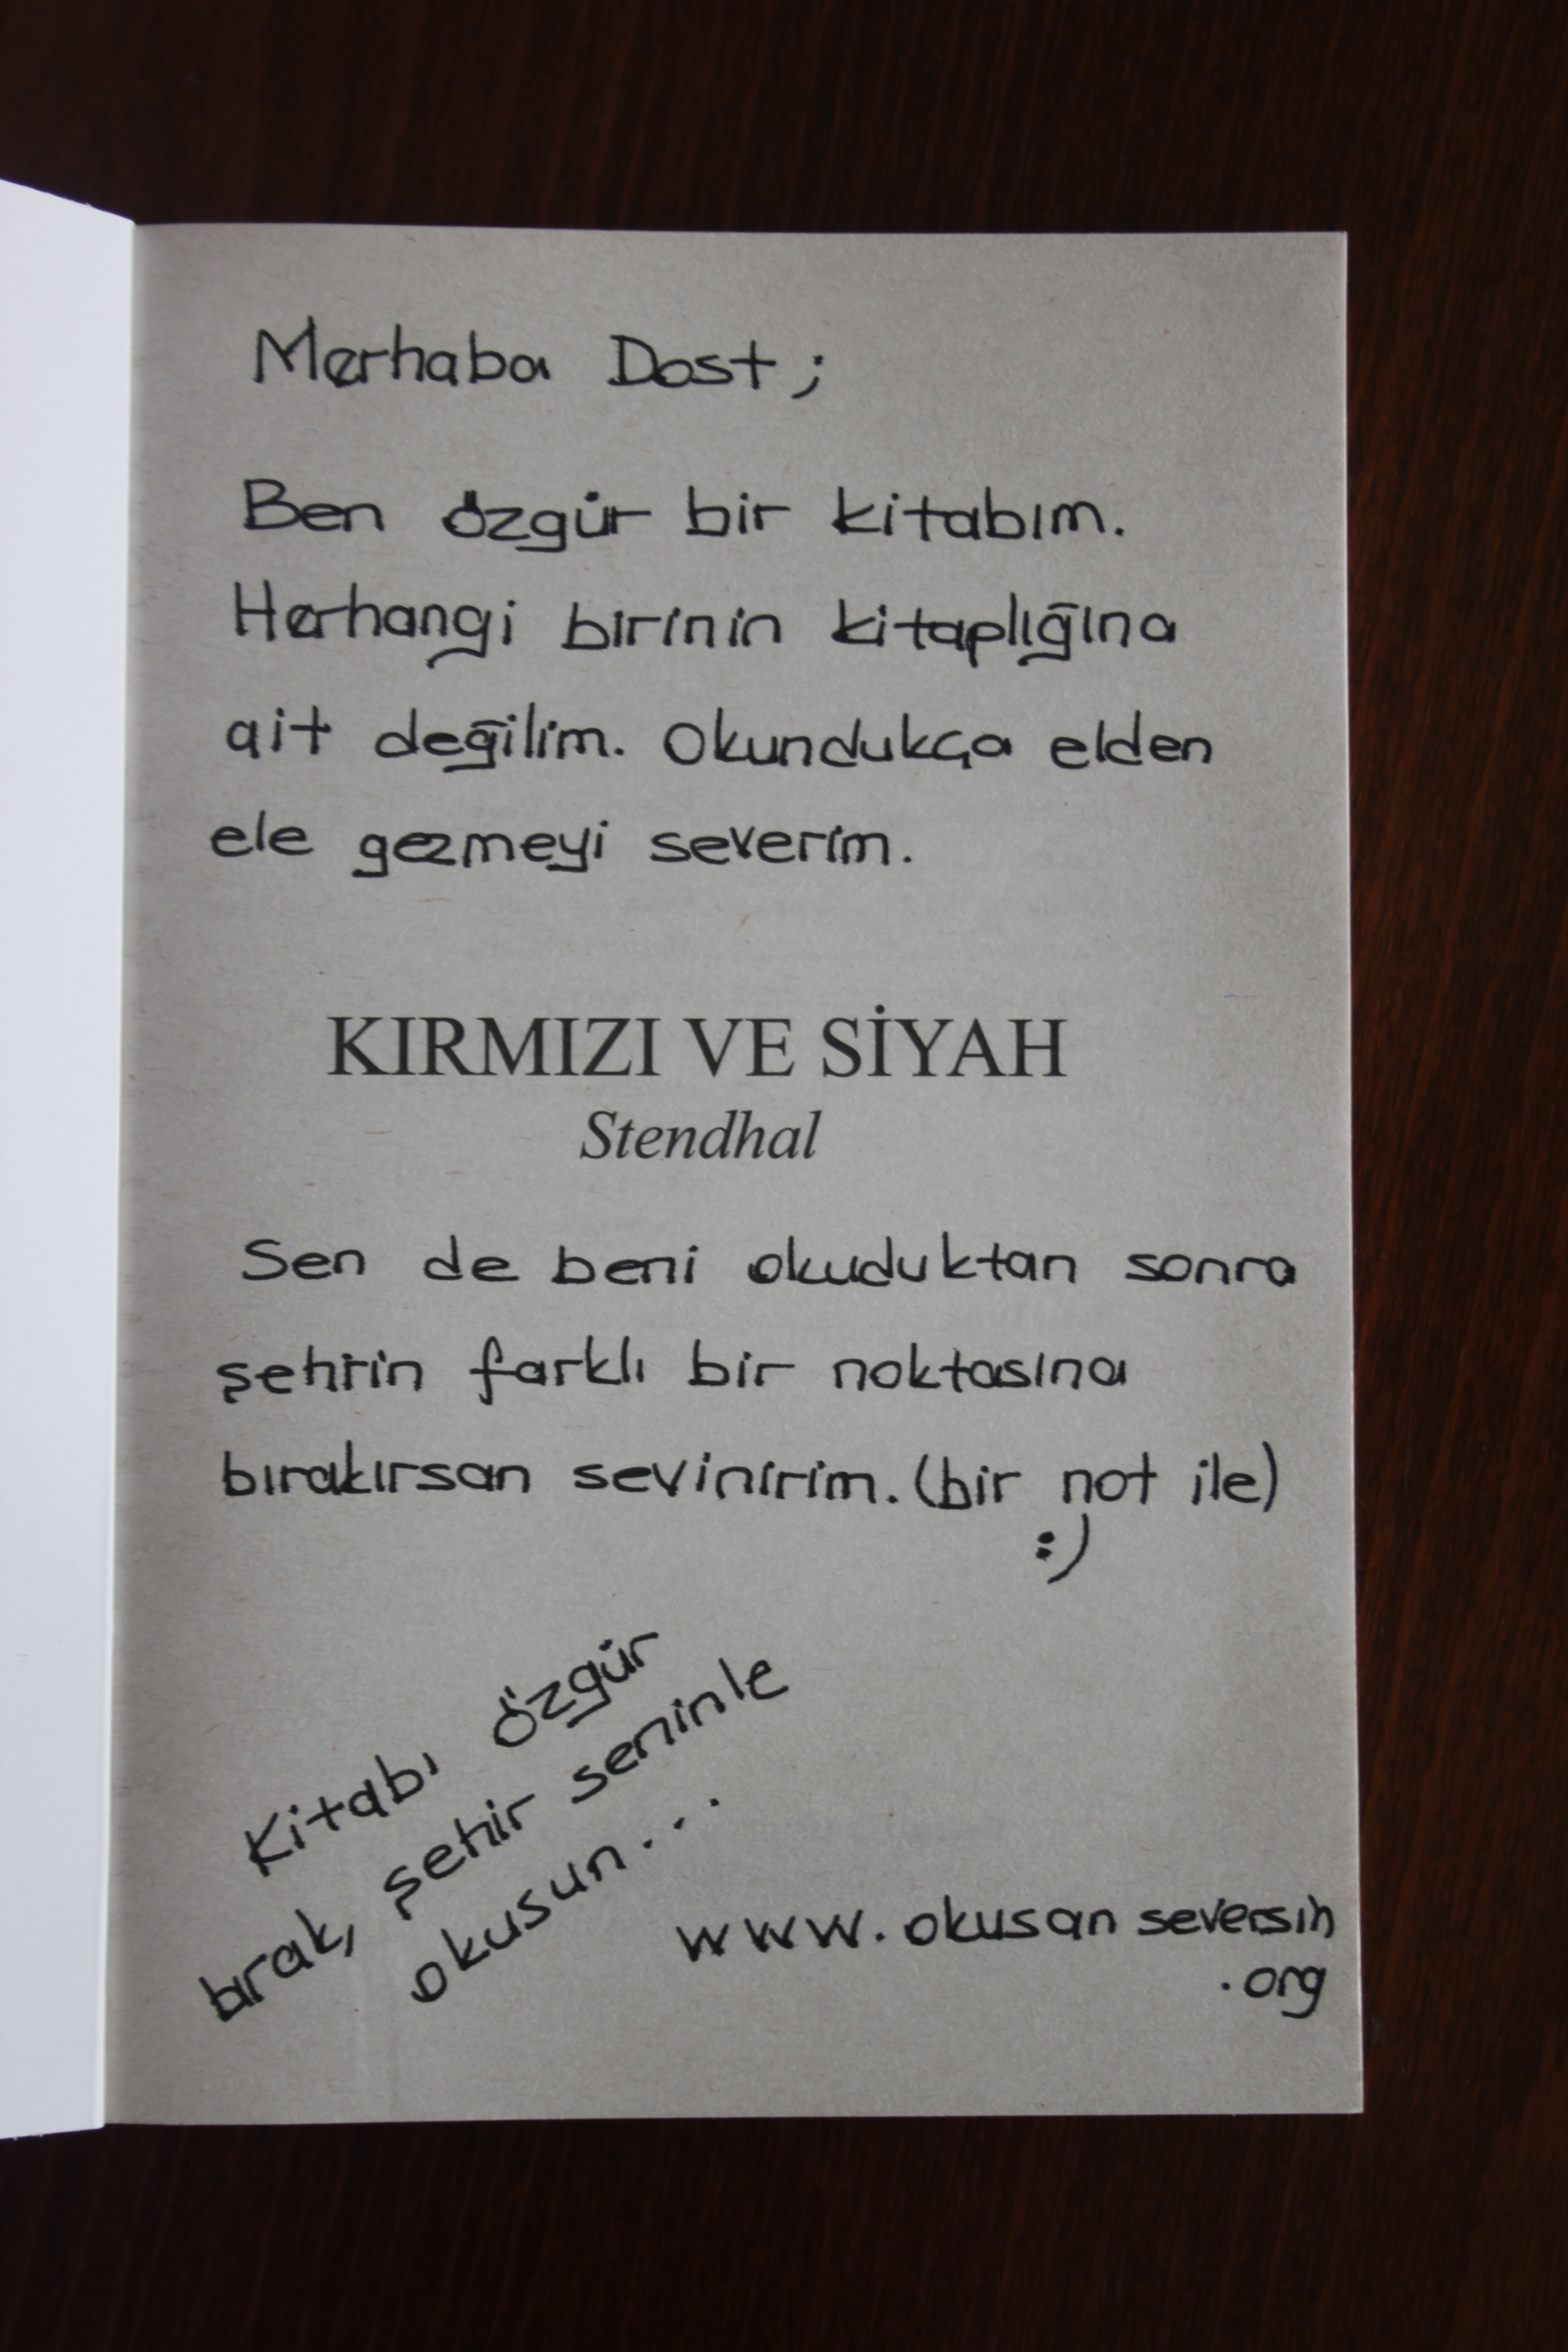 Merhaba Dost;
Ben özgür bir kitabım.
Herhangi birinin kitaplığına
ait değilim. Okundukça elden
ele gezmeyi severim.
KIRMIZI VE SİYAH
Stendhal
Sen de beni okuduktan sonra
şehrin farklı bir noktasına
bırakırsan sevinirim. (bir not ile)
:)
Kitabı özgür
bırak, şehir seninle
okusun...
www.okusan seversin
.org